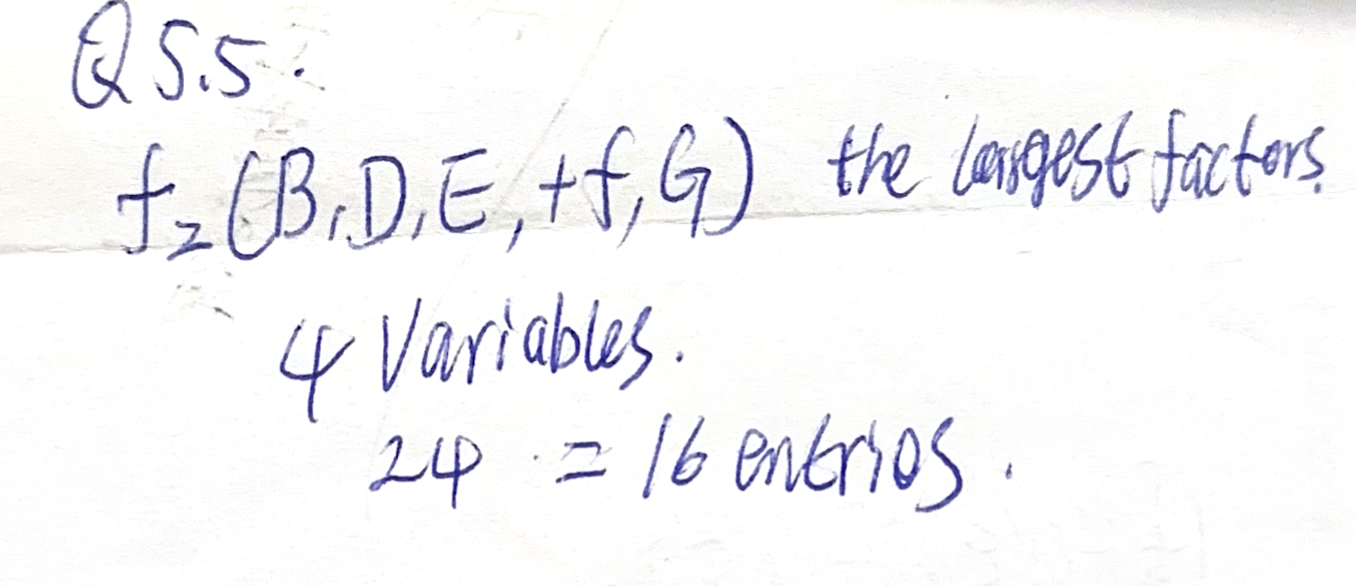 Q5.5.
f₂(B,D,E,+f,G) the largest factors.
4 Variables.
24 = 16 entries.